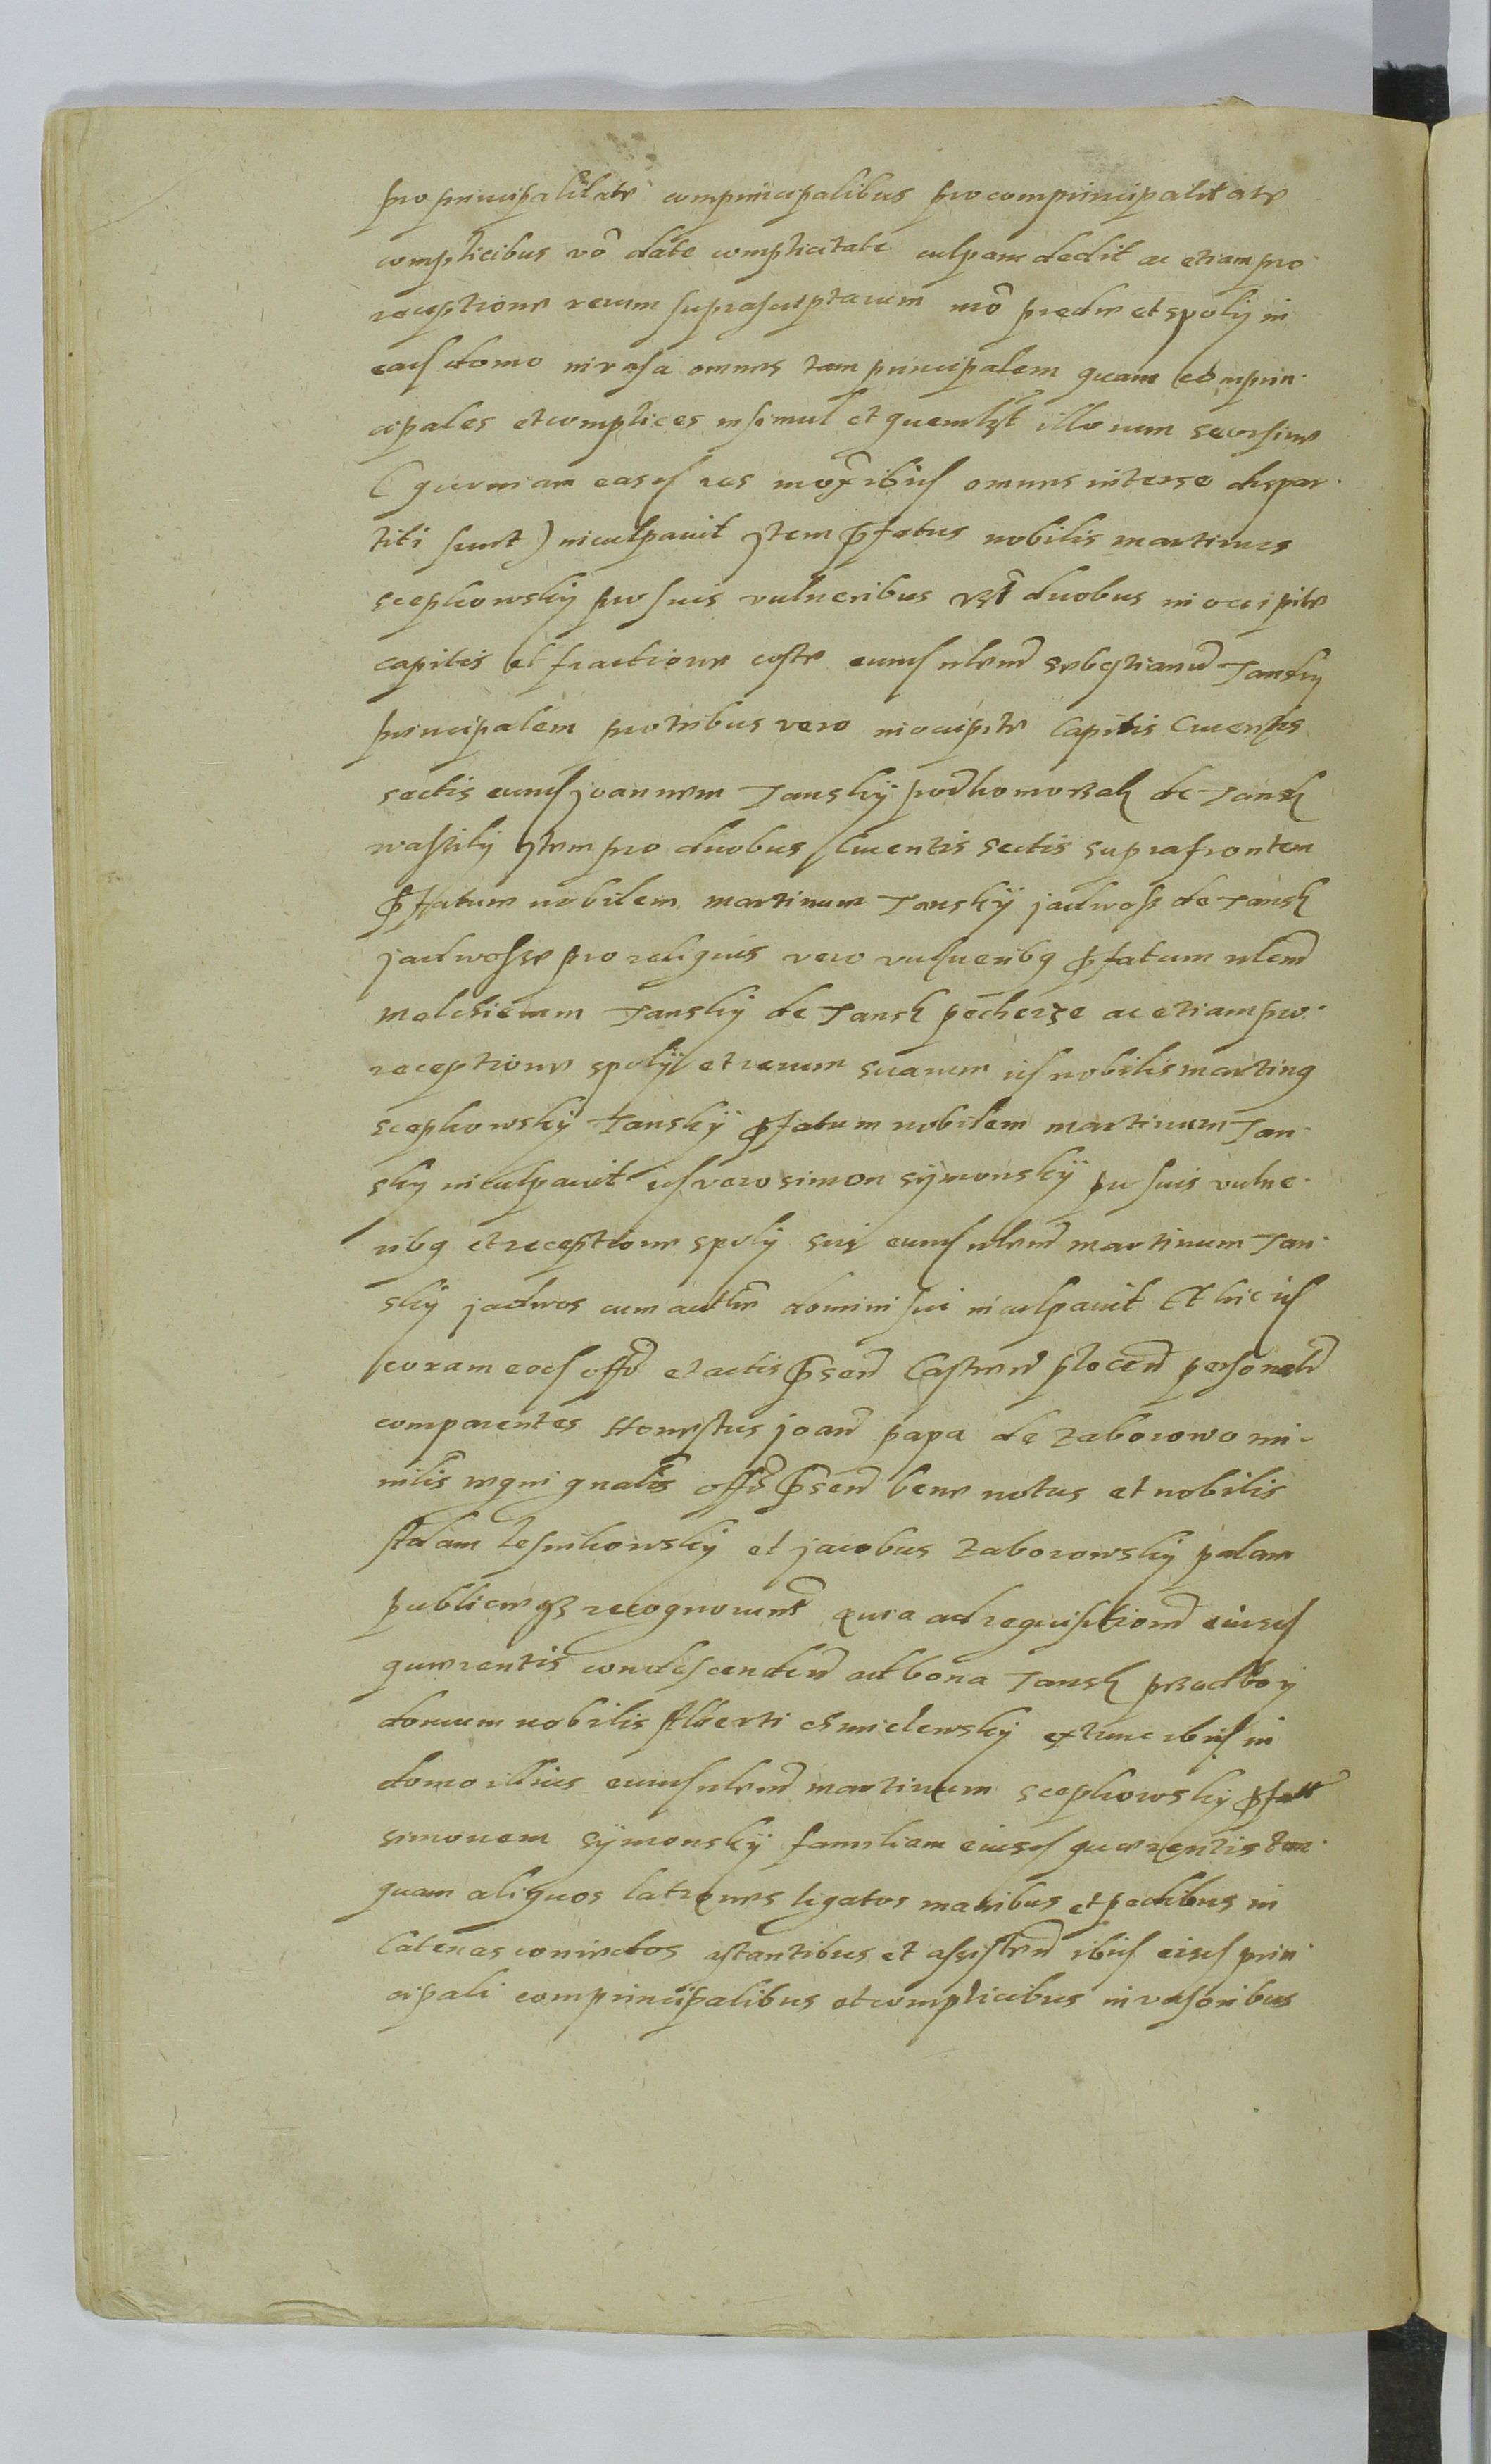 pro principalitate comprincipalibus pro comprincipalitate
complicibus vo date complicitate culpam dedit ac etiam pro
receptione rerum suprascriptarum mo prede et spolÿ in
ead domo in rosa omnes tam principalem quam comprin
cipales et complices insimul et quemlibet illorum seorsine
(quoniam easd res mox ibid omnes inter se dispar
titi sunt) inculpavit Item pfatus nobilis martinus
scepkowskÿ pro suis vulneribus vz duobus in occipite
capitis et fractione coste eund nlem sebestianum Tansky
principalem pro tribus vero in occipite Capitis Cruentis
sectis eund joannem Tanskÿ podkomorzak de Tansk
wassilÿ Item pro duobus Cruentis sectis supra frontem
pfatum nobilem martinum Tanskÿ jadwos de Tansk
jadwosse pro reliquis vero vulneribq pfatum nlem
melchierum Tanskÿ de Tansk pecherze ac etiam pro
receptione spolÿ et rerum suarum id nobilis martinq
scepkowskÿ Tanskÿ pfatum nobilem martinum Tan
skÿ inculpavit id vero simon sÿmonskÿ pro suis vulne
ribq et receptione spolÿ sui eund nlem martinum Tan
skÿ jadwos cum autte domini sui inculpavit Et hic id
coram eod offo et actis psen Castren plocen personalr
comparentes Honestus joan papa de Zaborowo mi
nilis regni gnalis offo psen bene notus et nobilis
Adam Lesnikowskÿ et jacobus Zaborowskÿ palam
publiceqz recognorunt quia ad requisitionem eiusd
querentis condescenden ad bona Tansk przedboÿ
domum nobilis Alberti chmielewskÿ ex tunc ibid in
domo illius eund nlem martinum scepkowskÿ pfatt
simonem sÿmonskÿ familiam eiusd querentis tan
quam aliquos latrones ligatos manibus et pedibus in
Catenas coniectos astantibus et assisten ibid eisd prin
cipali comprincipalibus et complicibus invasoribus